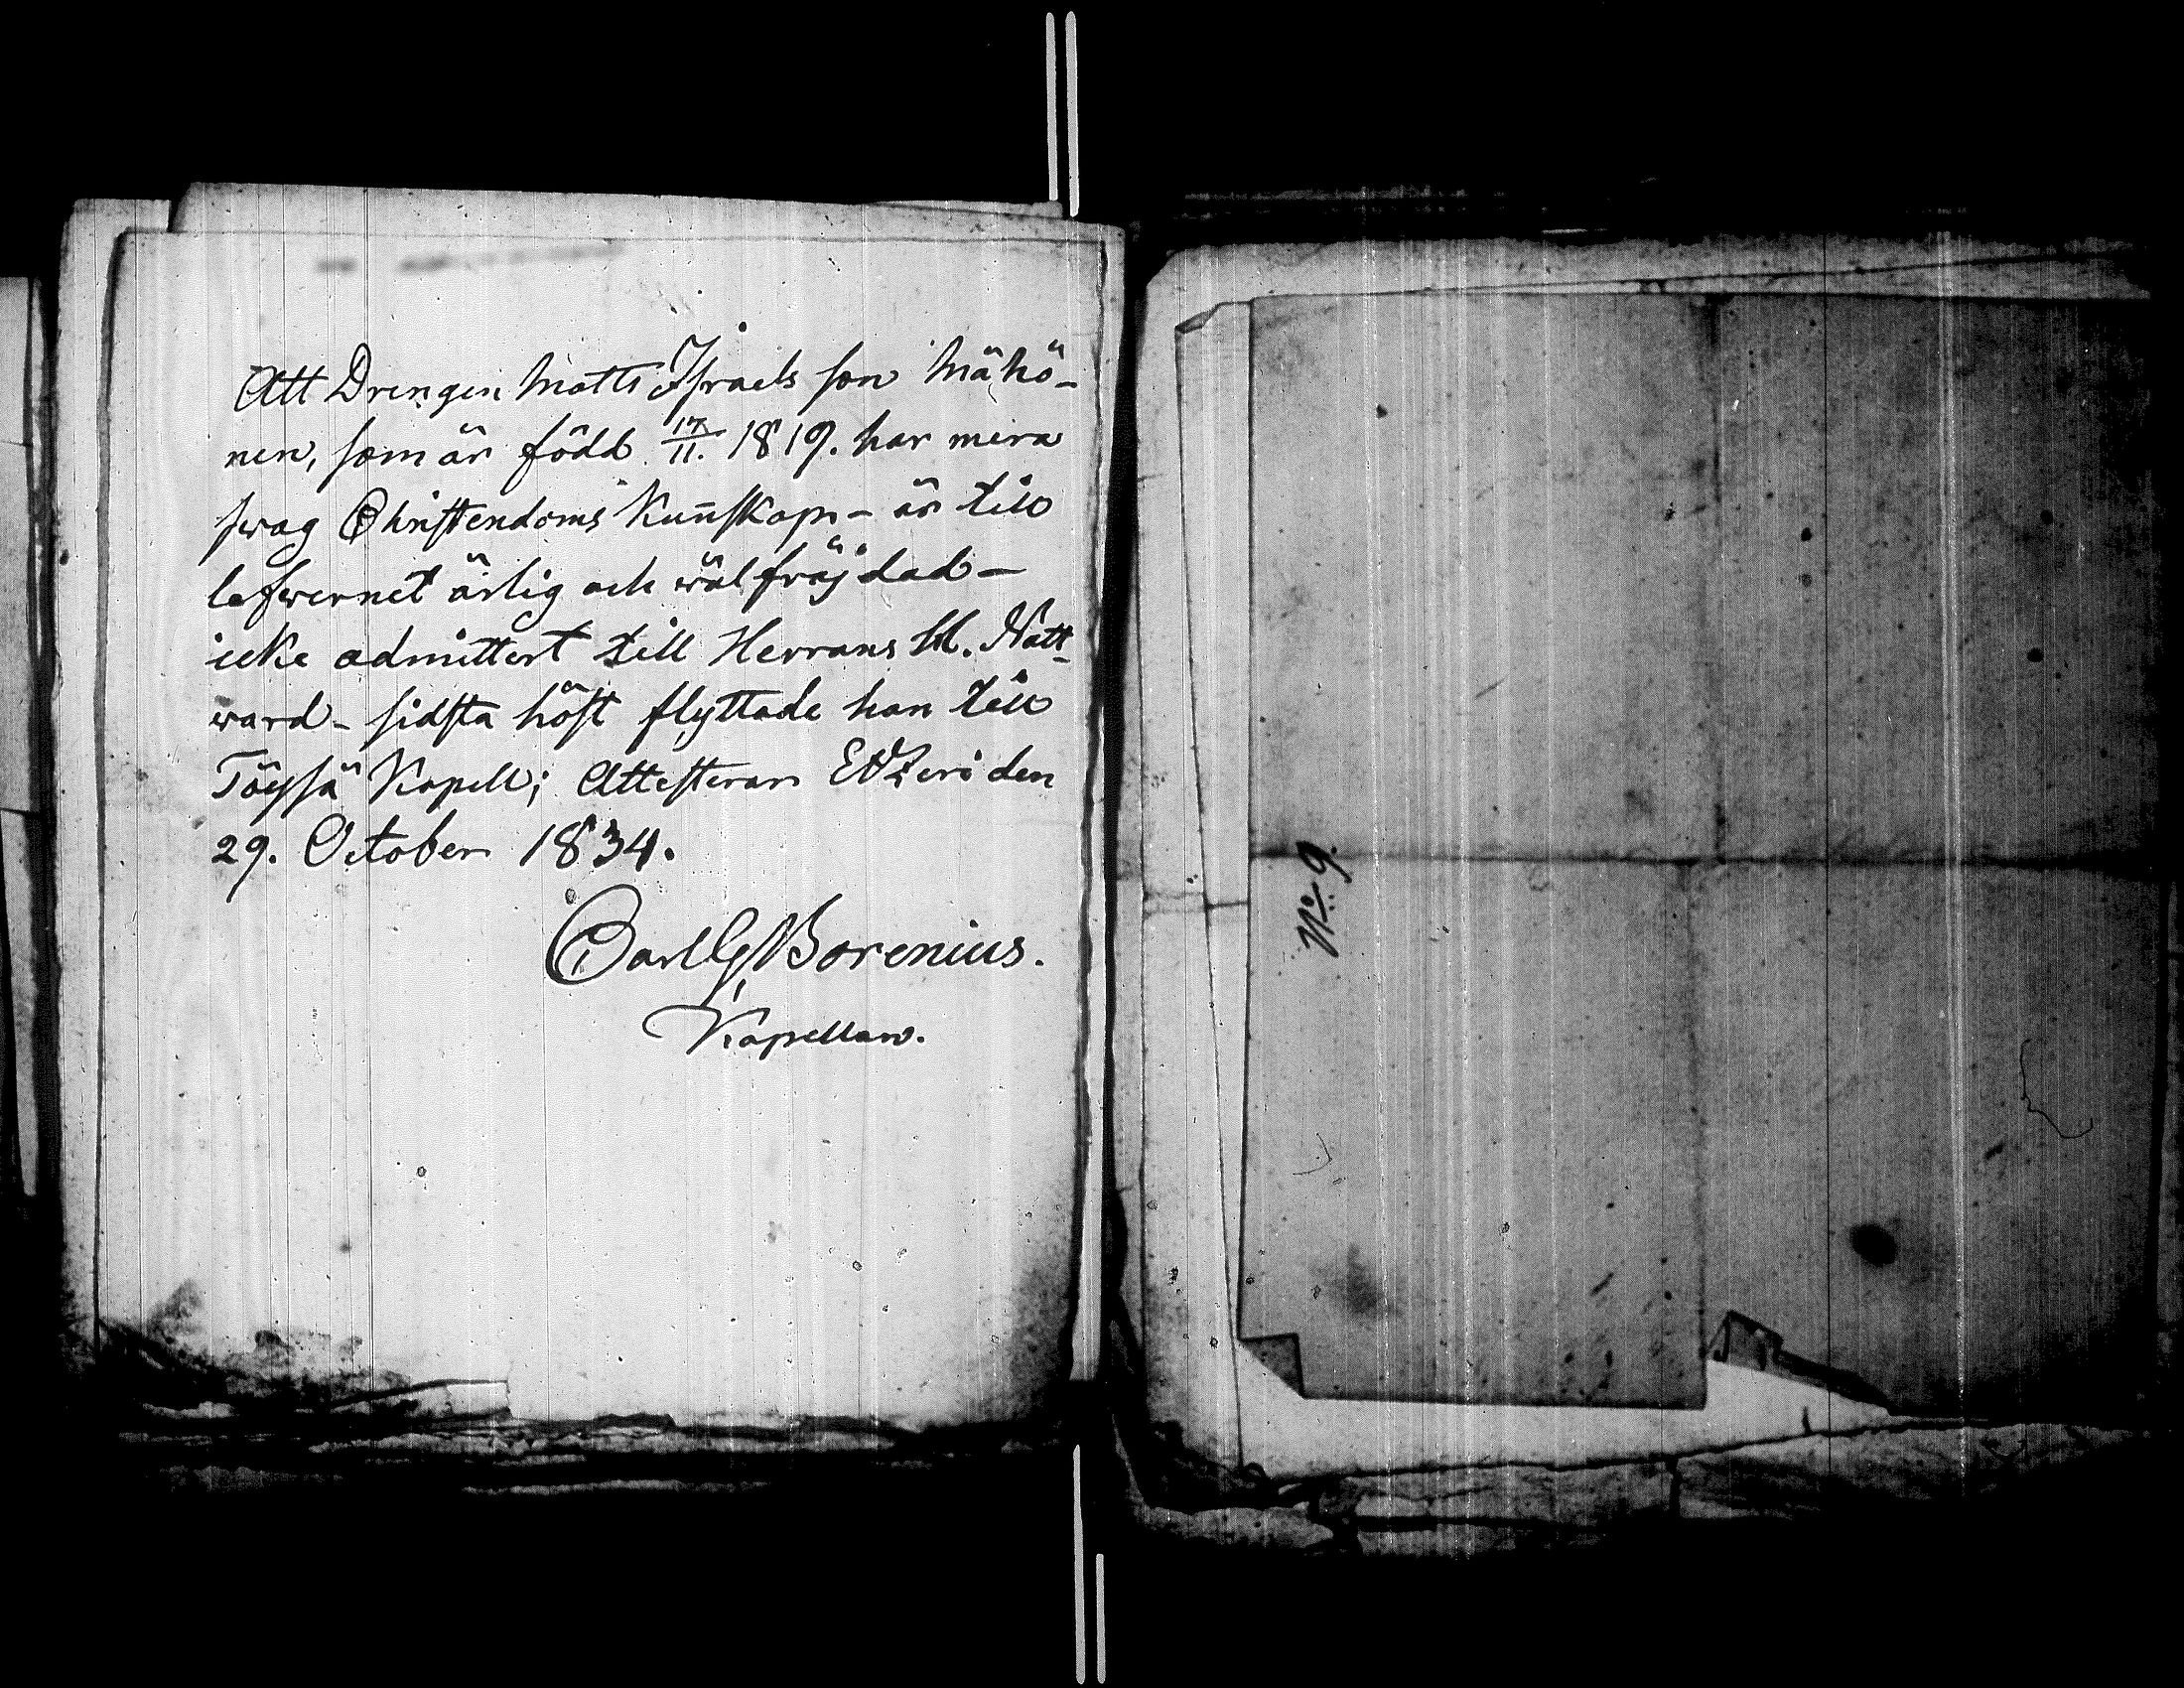 Att Drengen Matts Israels son Mähö-
nen, som är född 17/11. 1819. har mera
swag Christendoms Kun̄skap – är till
lefwernet ärlig och wälfräjdad –
icke admittert till Herrans H. Natt-
ward – sidsta höst flyttade han till
Töysä Kapell; Attesterar Etzeri den
29. October 1834.
Carl G Borenius.
Kapellan.
No 9.